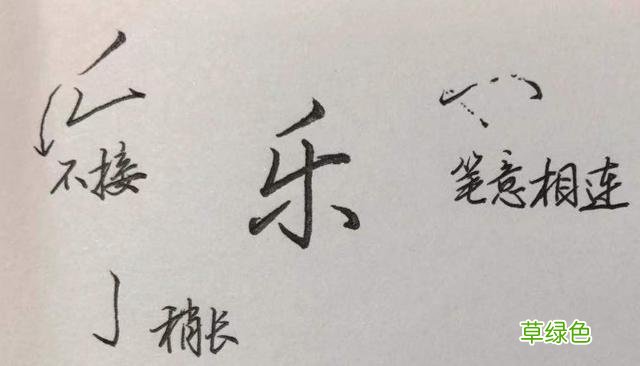 不接
乐
笔意相连
稍长
草绿色